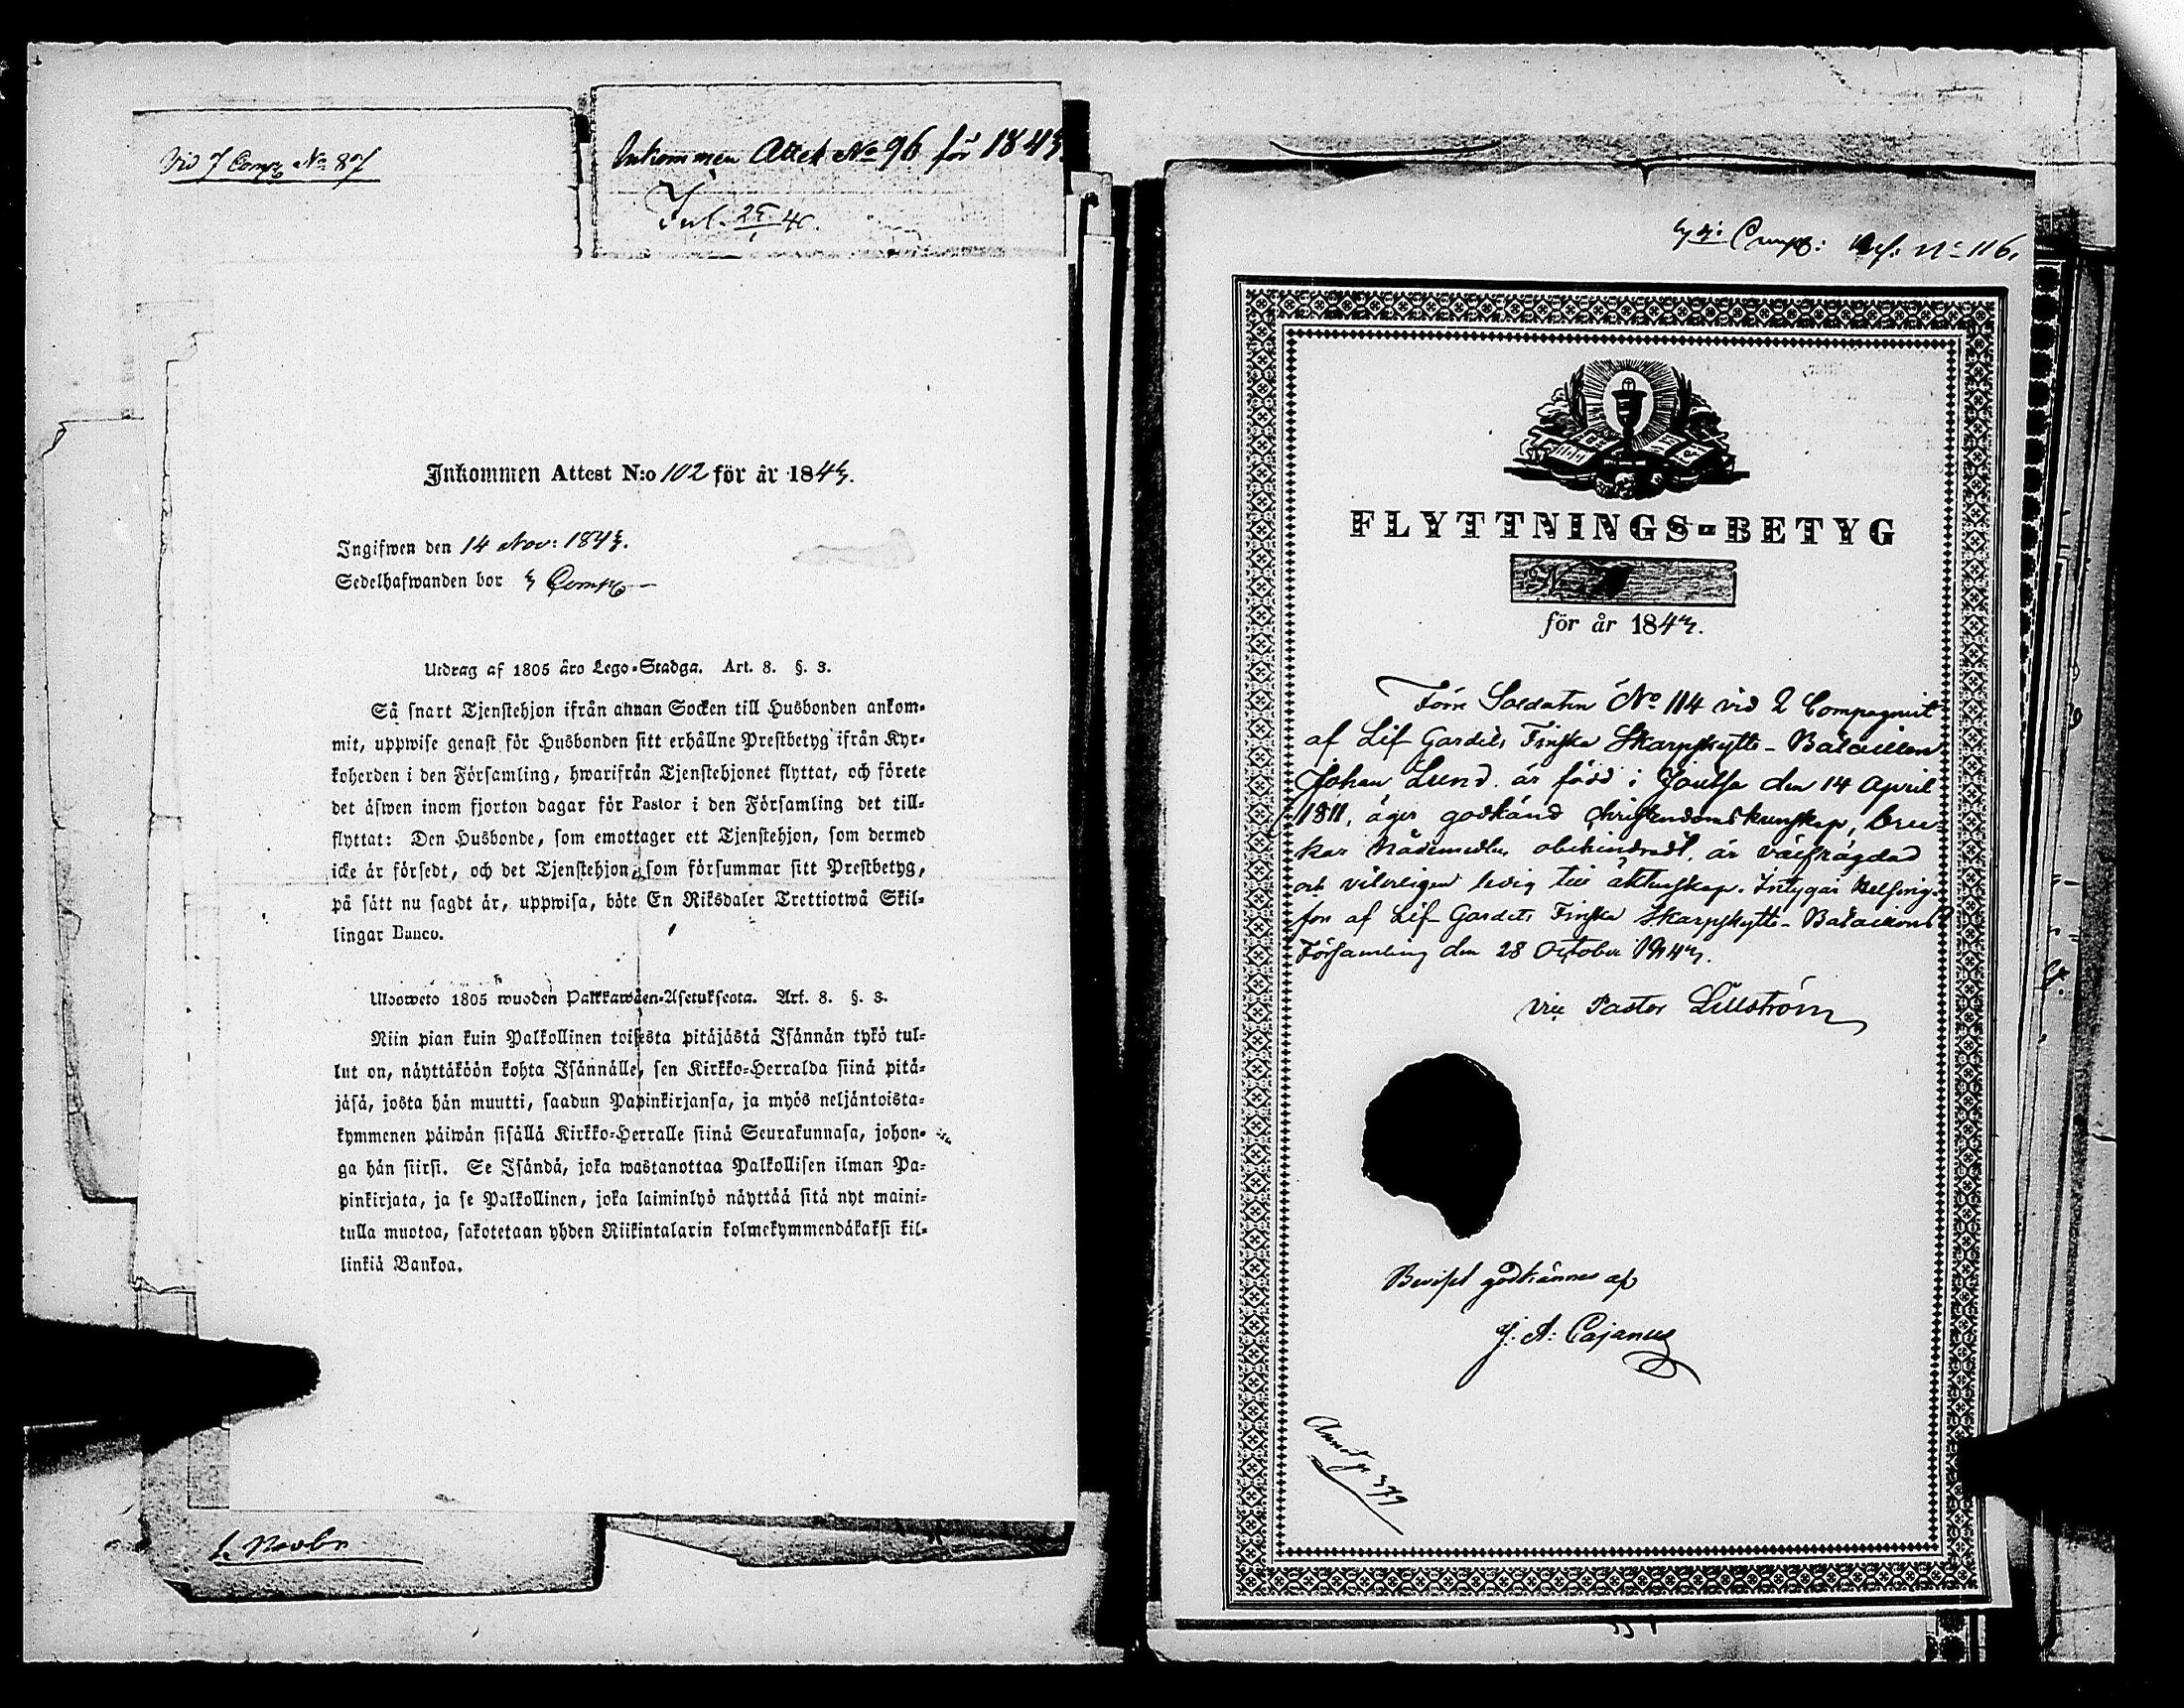 Vid 7 Comp No 87
Inkommen Attest No 96 för 1843
Jul.
Inkommen Attest N:o 102 för år 1843.
Ingifwen den 14 Nov: 1843.
Sedelhafwanden bor 3 Comp
Utdrag af 1805 års Lego-Stadga. Art. 8. §. 3.
Så snart Tjenstehjon ifrån annan Socken till Husbonden ankom-
mit, uppwise genast för Husbonden sitt erhållne Prestbetyg ifrån Kyr-
koherden i den Församling, hwarifrån Tjenstehjonet flyttat, och förete
det äfwen inom fjorton dagar för Pastor i den Församling det till-
flyttat: Den Husbonde, som emottager ett Tjenstehjon, som dermed
icke är försedt, och det Tjenstehjon, som försummar sitt Prestbetyg,
på sätt nu sagdt är, uppwisa, böte En Riksdaler Trettiotwå Skil-
lingar Banco.
Ulosweto 1805 wuoden Palkkawäen-Asetuksesta. Art. 8. §. 3.
Niin pian kuin Palkollinen toisesta pitäjästä Isännän tykö tul-
lut on, näyttäköön kohta Isännälle, sen Kirkko-Herralda siinä pitä-
jäsä, josta hän muutti, saadun Papinkirjansa, ja myös neljäntoista-
kymmenen päiwän sisällä Kirkko-Herralle siinä Seurakunnasa, johon-
ga hän siirsi. Se Isändä, joka wastanottaa Palkollisen ilman Pa-
pinkirjata, ja se Palkollinen, joka laiminlyö näyttää sitä nyt maini-
tulla muotoa, sakotetaan yhden Riikintalarin kolmekymmendäkaksi kil-
linkiä Bankoa.
Comp: No 116.
FLYTTNINGS-BETYG
N
för år 1843.
Förre Soldaten No 114 vid 2 Compagniet
af Lif-Gardets Finska Skarpskytte-Bataillon
Johan Lund är född i Joutsa den 14 April
1811, äger godkänd christendomskunskap, bru-
kar nådemedlen obehindradt, är välfrägdad
och veterligen ledig till äktenskap. Intygar Helsing-
fors af Lif-Gardets Finska Skarpskytte-Bataillons
Församling den 28 October 1843.
Vice Pastor Lillström
Beviset godkännes af
J. A: Cajanus
Annot p. 379